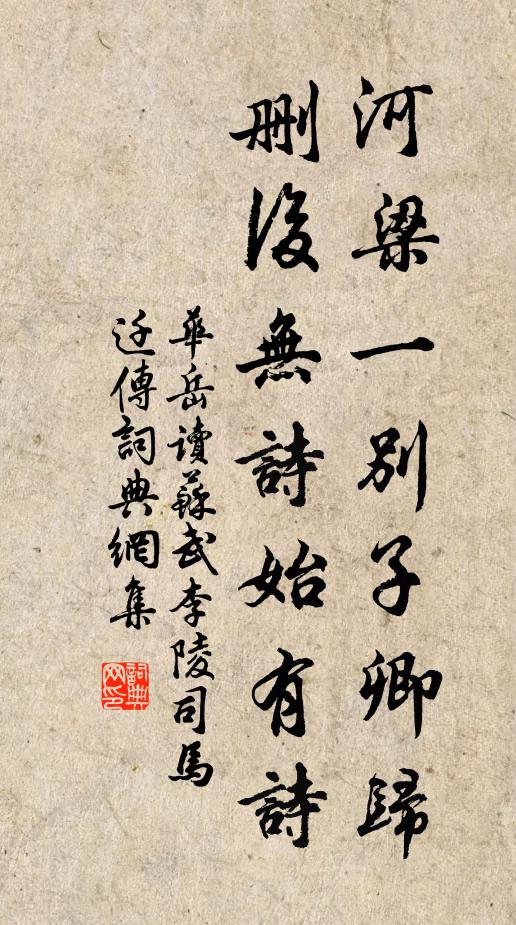 河梁一别子卿歸
刪後無詩始有詩
華岳讀蘇武李陵司馬
迁傳詞典網集
詞典
网印